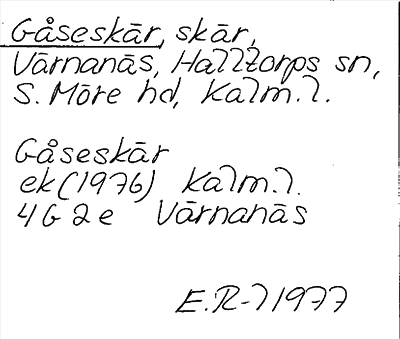 Gåseskär, skär,
Värnanäs, Halltorps sn,
S. Möre hd, Kalm.l.
Gåseskär
ek (1976) Kalm.l.
4G 2e Värnanäs
E.R-l 1977